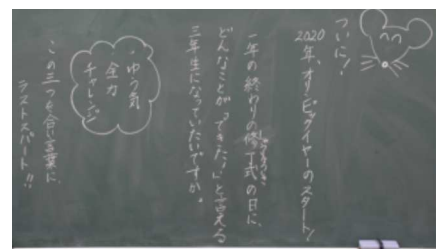 ついに！
2020年、オリンピックイヤーのスタート！
一年の終わりの修了式の日に、
どんなことが「できた！」と言える
三年生になっていたいですか。
・ゆう気
全力
チャレンジ
この三つを合い言葉に、
ラストスパート！！